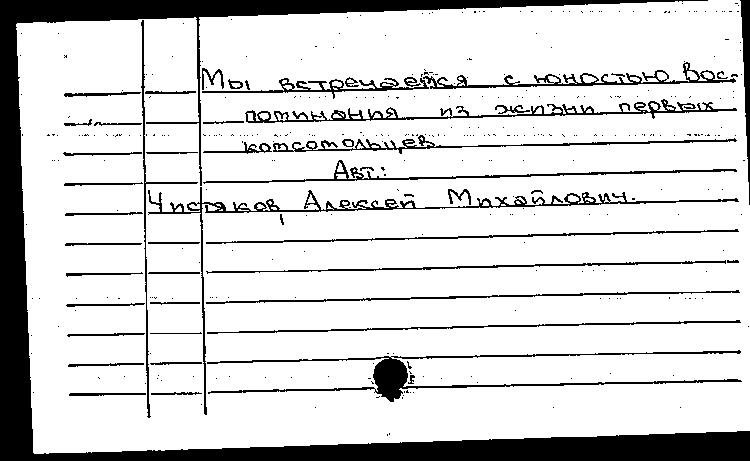 Мы встречаемся с юностью. Вос-
поминания из жизни первых
комсомольцев.
Авт.:
Чистяков, Алексей Михайлович.